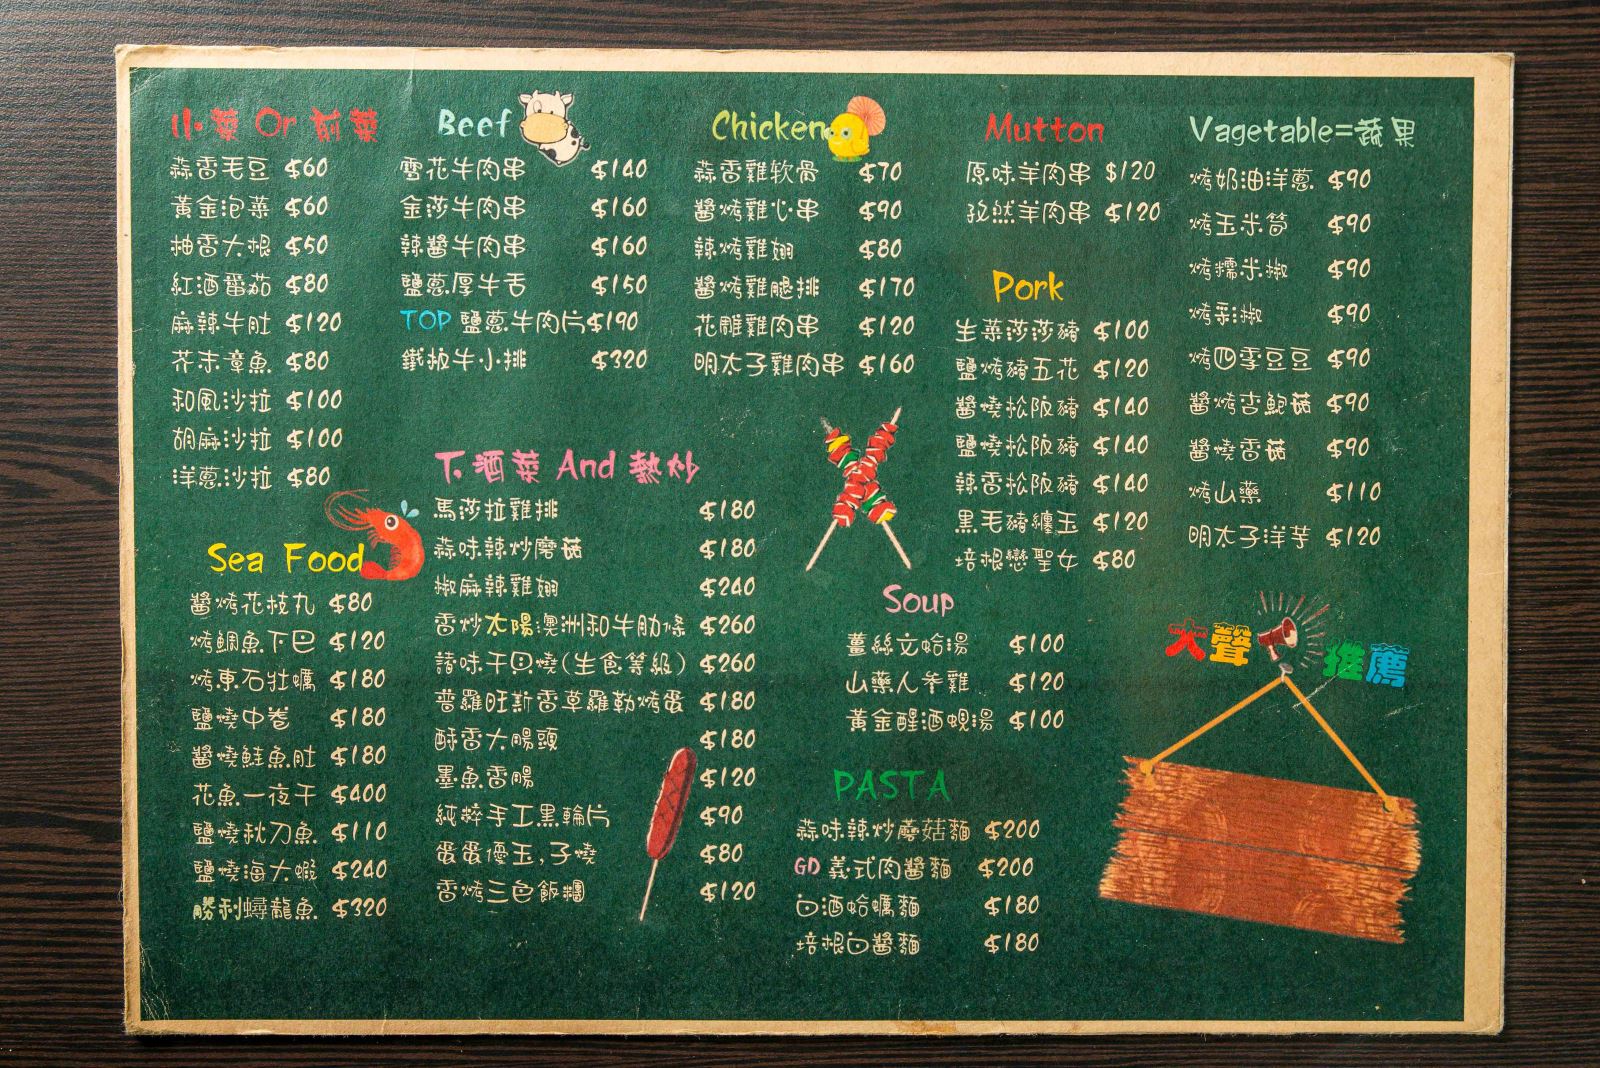 小菜 Or 前菜
蒜香毛豆 $60
黃金泡菜 $60
柚香大根 $50
紅酒番茄 $80
麻辣牛肚 $120
芥末章魚 $80
和風沙拉 $100
胡麻沙拉 $100
洋蔥沙拉 $80
Sea Food
醬烤花枝丸 $80
烤鯛魚下巴 $120
烤東石牡蠣 $180
鹽燒中卷 $180
醬燒鮭魚肚 $180
花魚一夜干 $400
鹽燒秋刀魚 $110
鹽燒海大蝦 $240
勝利蟳龍魚 $320
Beef
雪花牛肉串 $140
金莎牛肉串 $160
辣醬牛肉串 $160
鹽蔥厚牛舌 $150
TOP 鹽蔥牛肉片 $190
鐵板牛小排 $320
下酒菜 And 熱炒
馬莎拉雞排 $180
蒜味辣炒磨菇 $180
椒麻辣雞翅 $240
香炒太陽澳洲和牛肋條 $260
諸味干貝燒(生食等級) $260
普羅旺斯香草羅勒烤蛋 $180
酥香大腸頭 $180
墨魚香腸 $120
純粹手工黑輪片 $90
蛋蛋優玉,子燒 $80
香烤三色飯糰 $120
Chicken
蒜香雞软骨 $70
醬烤雞心串 $90
辣烤雞翅 $80
醬烤雞腿排 $170
花雕雞肉串 $120
明太子雞肉串 $160
Mutton
原味羊肉串 $120
孜然羊肉串 $120
Pork
生菜莎莎豬 $100
鹽烤豬五花 $120
醬燒松阪豬 $140
鹽燒松阪豬 $140
辣香松阪豬 $140
黑毛豬纏玉 $120
培根戀聖女 $80
Soup
薑絲文蛤湯 $100
山藥人參雞 $120
黃金醒酒蜆湯 $100
PASTA
蒜味辣炒蘑菇麵 $200
GD 義式肉醬麵 $200
白酒蛤蠣麵 $180
培根白醬麵 $180
Vagetable=蔬果
烤奶油洋蔥 $90
烤玉米筍 $90
烤糯米椒 $90
烤彩椒 $90
烤四季豆豆 $90
醬烤杏鮑菇 $90
醬燒香菇 $90
烤山藥 $110
明太子洋芋 $120
大聲推薦